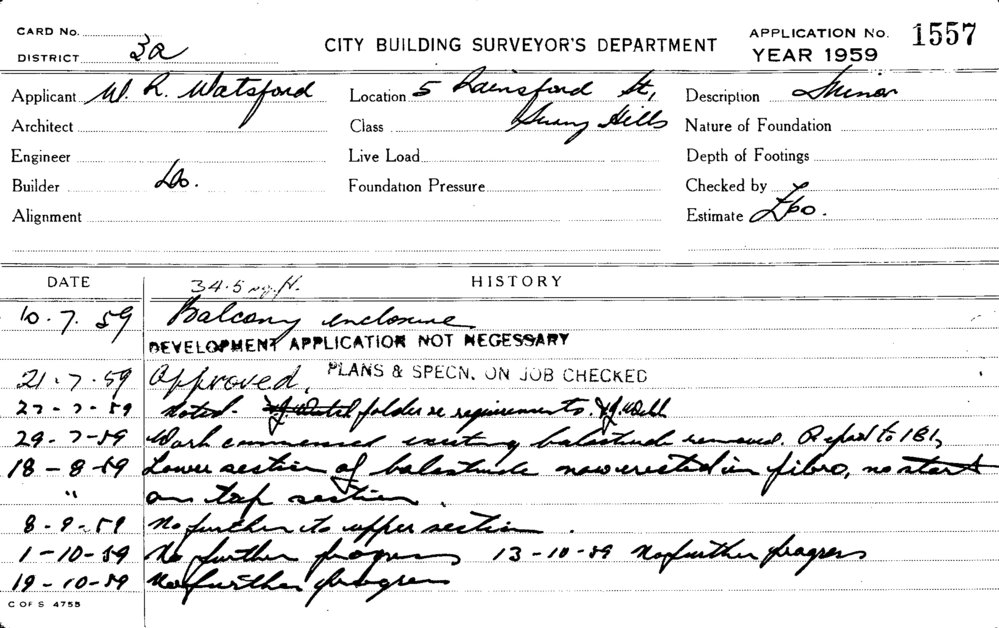 CARD No.
DISTRICT 3a
CITY BUILDING SURVEYOR'S DEPARTMENT
APPLICATION No. 1557
YEAR 1959
Applicant W. R. Watsford
Location 5 Rainsford St,
Surry Hills
Description Minor
Architect
Class
Nature of Foundation
Engineer
Live Load
Depth of Footings
Builder Do.
Foundation Pressure
Checked by
Alignment
Estimate £60.
DATE
HISTORY
34.5 sq. ft.
10.7.59 Balcony enclosure
DEVELOPMENT APPLICATION NOT NECESSARY
21.7.59 Approved. PLANS & SPECN. ON JOB CHECKED
27-7-59 Noted. folder re requirements.
29-7-59 Work commenced existing balastrude removed. to
18-8-59 Lower section of balastrude now erected in fibro, no start
" on top section.
8-9-59 No further to upper section.
1-10-59 No further progress 13-10-59 No further progress
19-10-59 No further progress
C OF S 4755